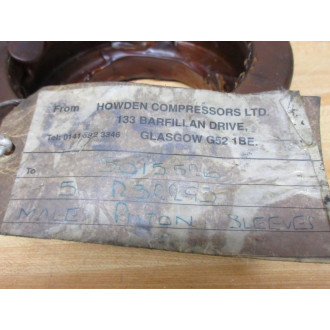 From HOWDEN COMPRESSORS LTD.
133 BARFILLAN DRIVE,
Tel: 0141 882 3346 GLASGOW G52 1BE.
To
5
MALE PISTON SLEEVES